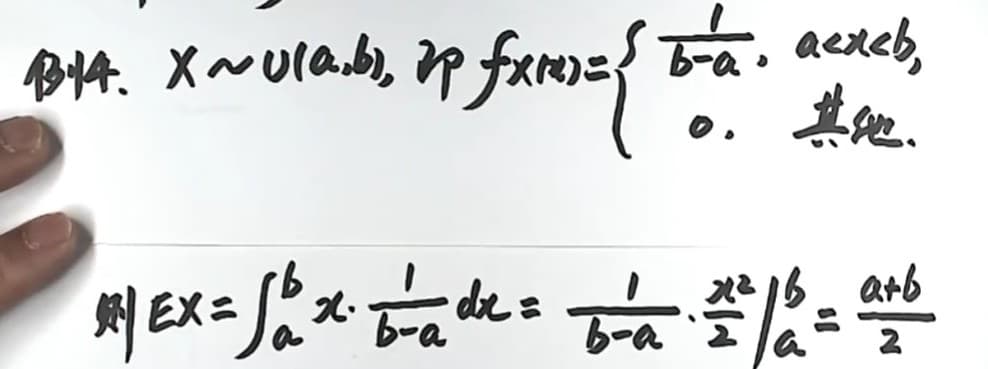 例14. X~U(a,b), 即 f_X(x)={ 1/(b-a), a<x<b,
0. 其他.
则 EX=∫_a^b x·1/(b-a) dx = 1/(b-a)·x²/2 |_a^b = (a+b)/2